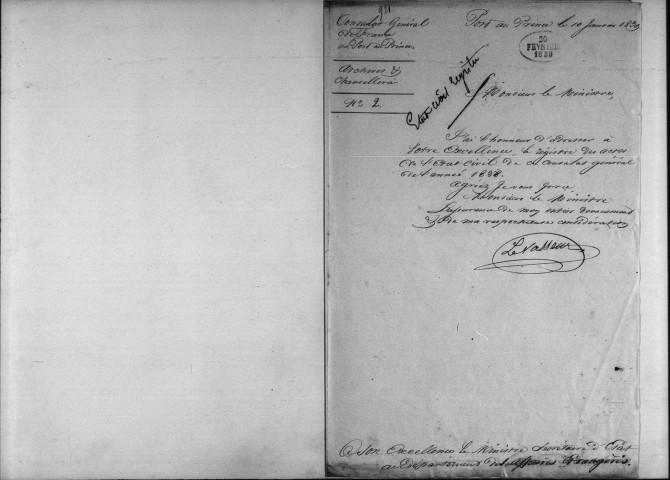 Consulat Général
de France
au Port au Prince
Archives &
Chancellerie
N° 2.
Port au Prince le 10 Janvier 1839
20
FÉVRIER
1839
Etat civil
Monsieur le Ministre,
J'ai l'honneur d'adresser à
Votre Excellence, le registre des actes
de l'Etat Civil de ce Consulat général
de l'année 1838.
Agréez je vous prie
Monsieur le Ministre
l'assurance de mon entier dévouement
& de ma respectueuse considération
Levasseur
A Son Excellence le Ministre Secrétaire d'Etat
au Département des Affaires Etrangères.